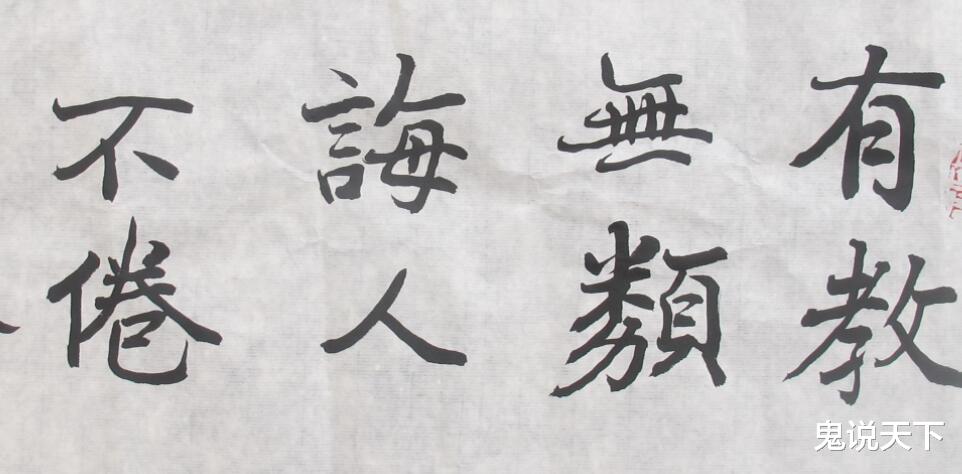 有教
無類
誨人
不倦
鬼说天下